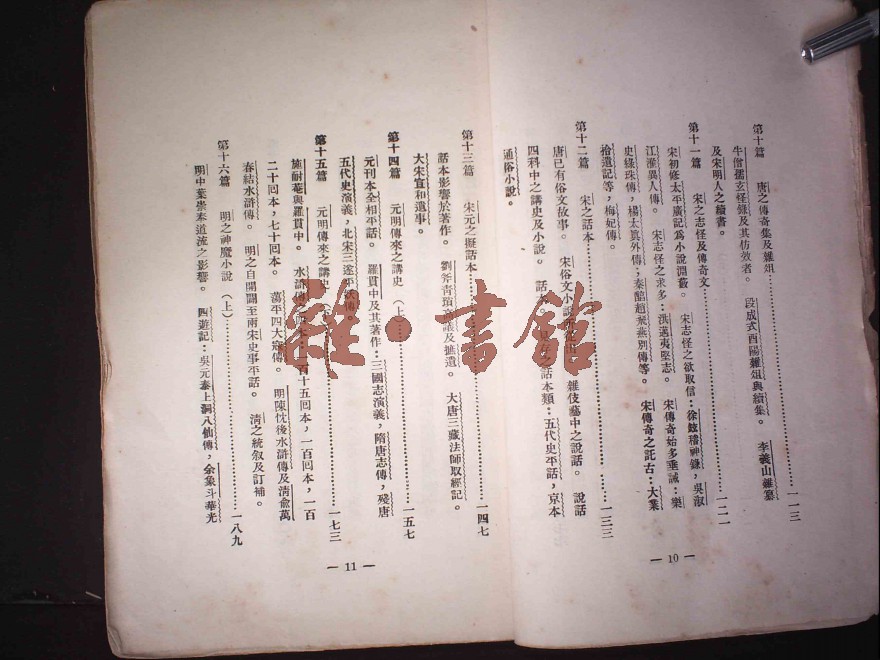 第十篇 唐之傳奇集及雜俎……一一三
牛僧孺玄怪錄及其仿效者。 段成式酉陽雜俎與續集。 李義山雜纂
及宋明人之續書。
第十一篇 宋之志怪及傳奇文……一二一
宋初修太平廣記為小說淵藪。 宋志怪之欲取信:徐鉉稽神錄,吳淑
江淮異人傳。 宋志怪之求多:洪邁夷堅志。 宋傳奇始多垂誡:樂
史綠珠傳,楊太眞外傳;秦醇趙飛燕別傳等。 宋傳奇之託古:大業
拾遺記等,梅妃傳。
第十二篇 宋之話本……一三三
唐已有俗文故事。 宋俗文小說 雜伎藝中之說話。 說話
四科中之講史及小說。 話本 之話本類:五代史平話,京本
通俗小說。
— 10 —
第十三篇 宋元之擬話本……一四七
話本影響於著作。 劉斧青瑣 議及摭遺。 大唐三藏法師取經記。
大宋宣和遺事。
第十四篇 元明傳來之講史(上)……一五七
元刊本全相平話。 羅貫中及其著作:三國志演義,隋唐志傳,殘唐
五代史演義,北宋三遂平妖傳。
第十五篇 元明傳來之講史 ……一七三
施耐菴與羅貫中。 水滸傳 本:一百十五回本,一百回本,一百
二十回本,七十回本。 蕩平四大寇傳。 明陳忱後水滸傳及清俞萬
春結水滸傳。 明之自開闢至兩宋史事平話。 清之統敘及訂補。
第十六篇 明之神魔小說(上)……一八九
明中葉崇奉道流之影響。 四遊記:吳元泰上洞八仙傳,余象斗華光
— 11 —
雜·書館